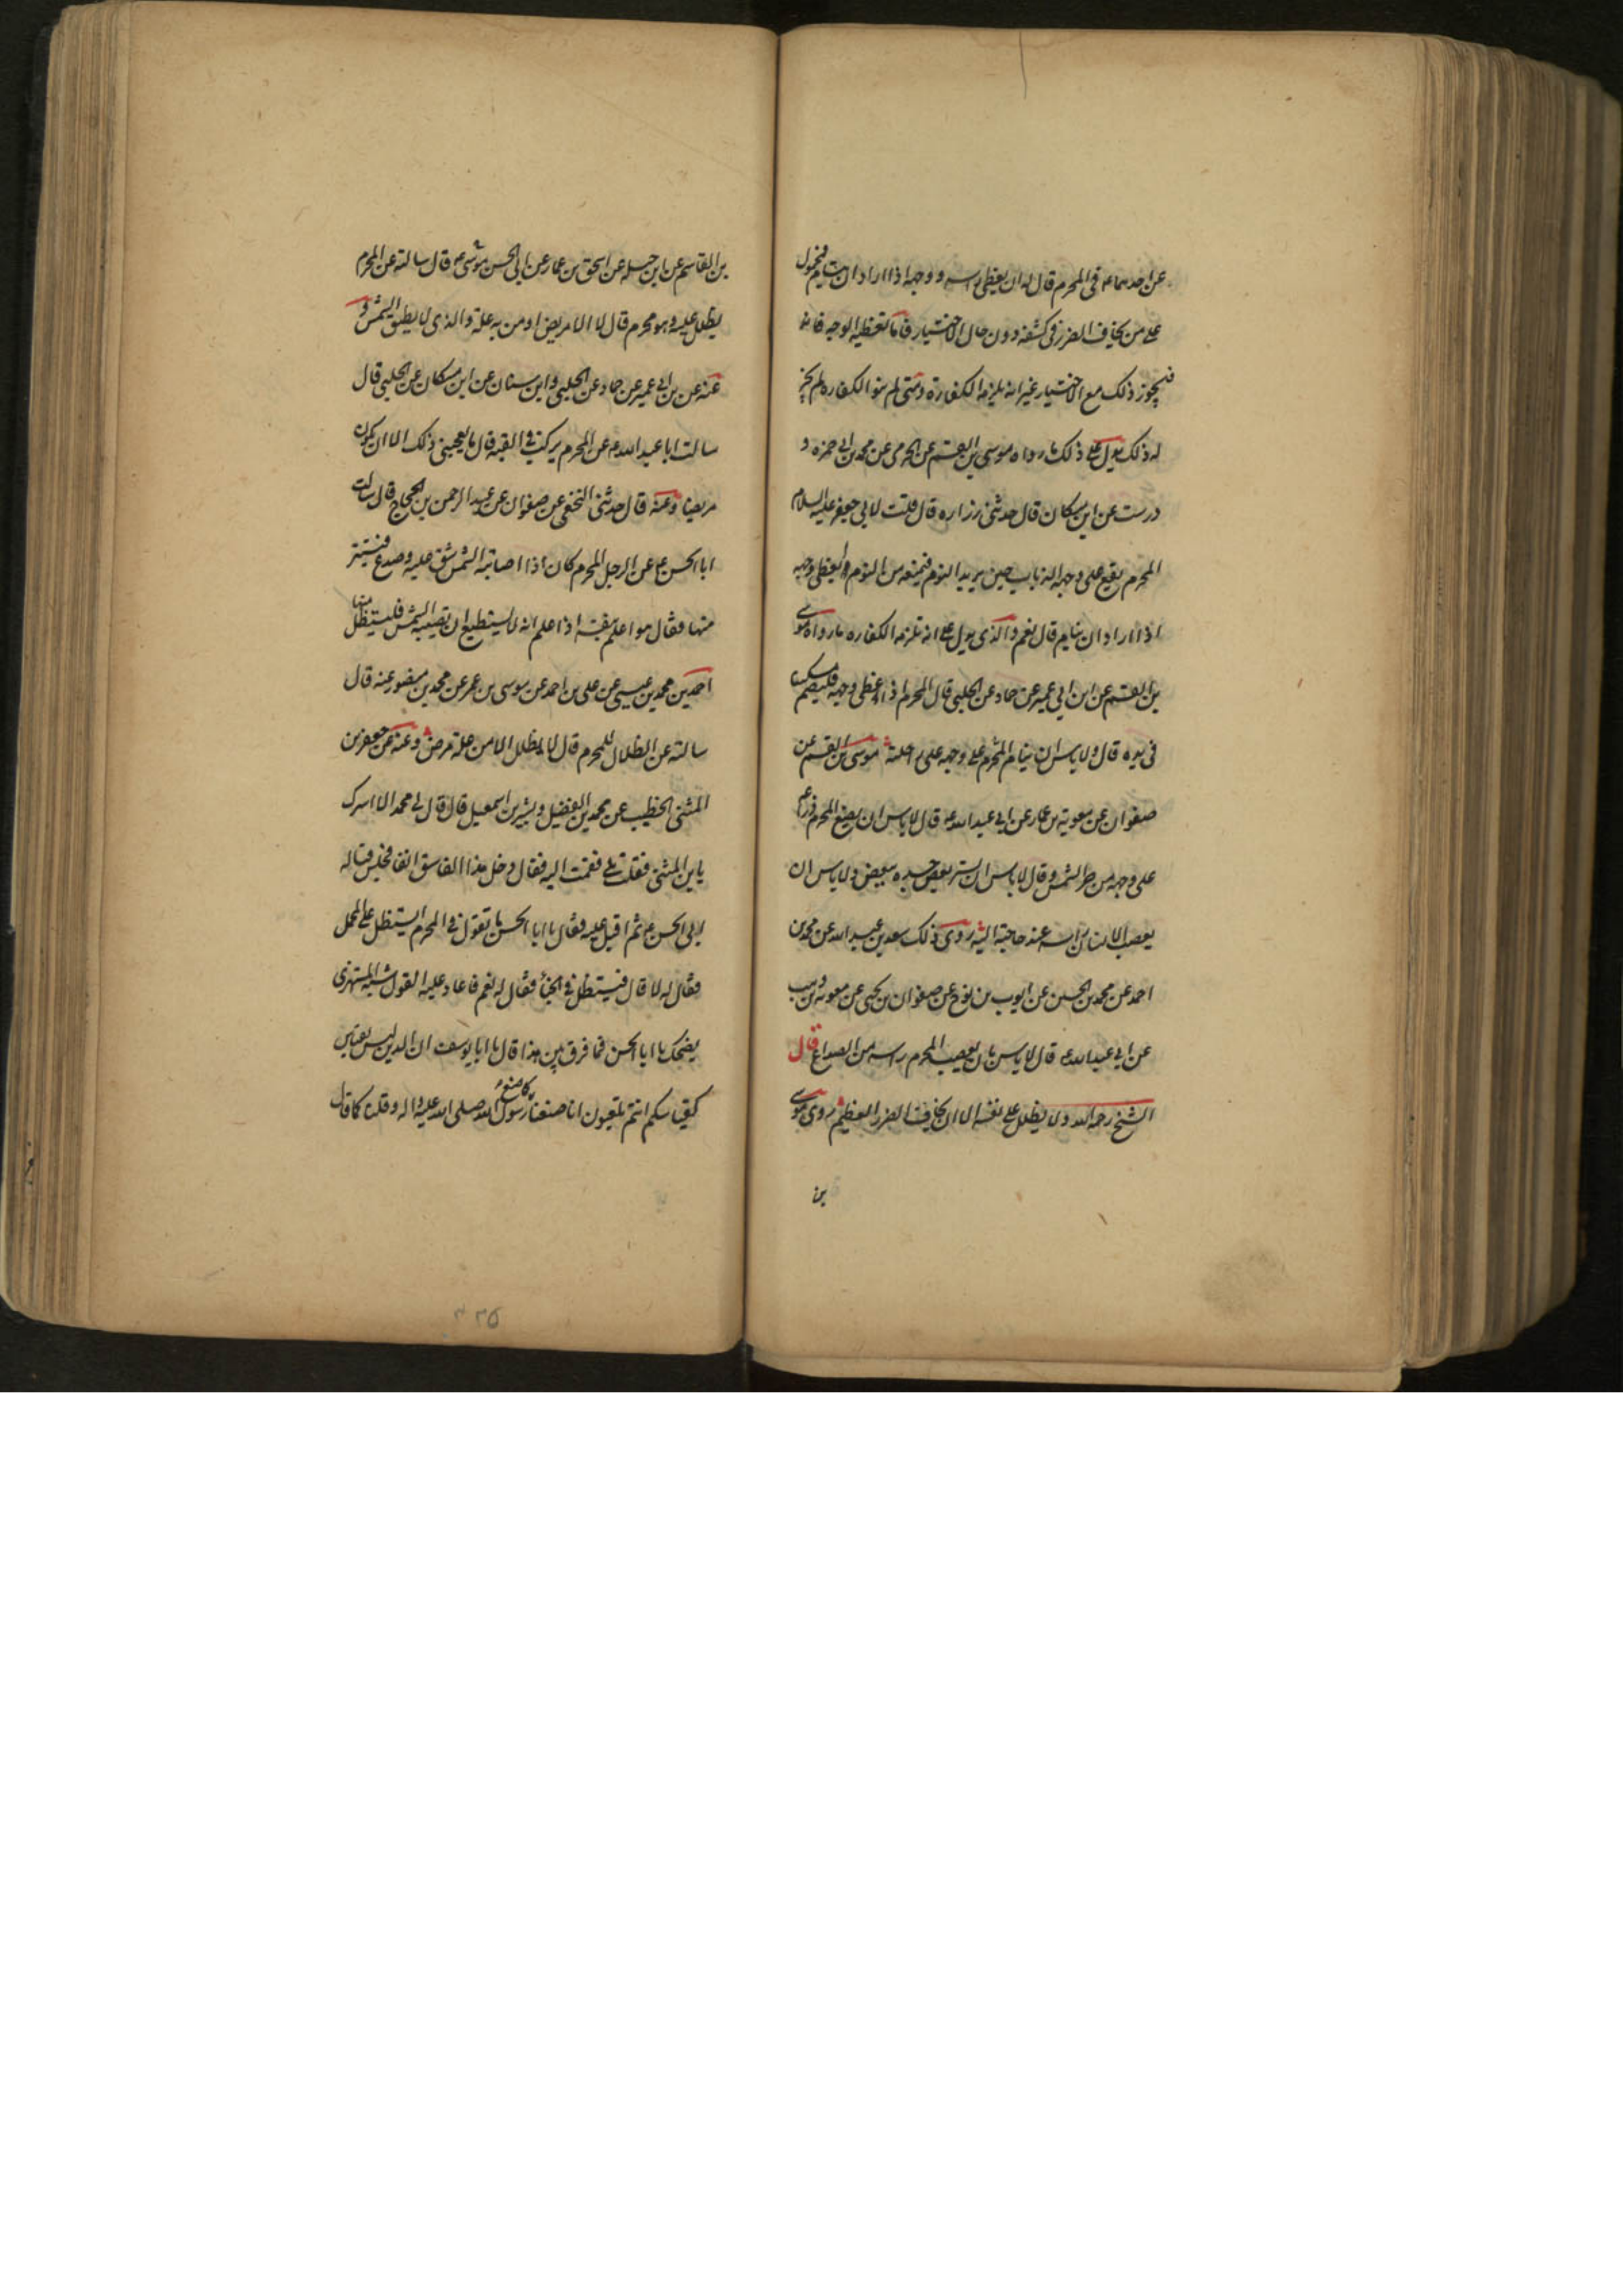 عن احدهما ع فى المحرم قال له ان يغطى راسه ووجهه اذا اراد ان ينام فمحمول
على من يخاف الضرر فى كشفه دون حال الاختيار فاما تغطية الوجه فانه
فيجوز ذلك مع الاختيار غير انه يلزمه الكفارة ومتى لم ينو الكفاره لم يجز
له ذلك يدل على ذلك ما رواه موسى بن القسم عن الجرمى عن محمد بن ابى حمزه و
درست عن ابن مسكان قال حدثنى زراره قال قلت لابى جعفر عليه السلام
المحرم يقع على وجهه الذباب حين يريد النوم فيمنعه من النوم ايغطى وجهه
اذا اراد ان ينام قال نعم والذى يدل على انه تلزمه الكفاره ما رواه موسى
بن القسم عن ابن ابى عمير عن حماد عن الحلبى قال المحرم اذا غطى وجهه فليطعم مسكينا
فى يده قال ولا باس ان ينام المحرم على وجهه على راحلته موسى بن القسم عن
صفوان عن معوية بن عمار عن ابى عبد الله ع قال لا باس ان يضع المحرم ذراعه
على وجهه من حر الشمس وقال لا باس ان يستر بعض جسده ببعض ولا باس ان
يعصب الانسان راسه عند حاجته اليه روى ذلك سعد بن عبد الله عن محمد بن
احمد عن محمد بن الحسين عن ايوب بن نوح عن صفوان بن يحيى عن معوية بن وهب
عن ابى عبد الله ع قال لا باس بان يعصب المحرم راسه من الصداع قال
الشيخ رحمه الله ولا يظلل على نفسه الا ان يخاف الضرر العظيم روى موسى
بن
بن القاسم عن ابن جبله عن اسحق بن عمار عن ابى الحسن موسى ع قال سالته عن المحرم
يظلل عليه وهو محرم قال لا الا مريض او من به علة والذى لا يطيق الشمس و
عنه عن بن ابى عمير عن حماد عن الحلبى وابن سنان عن ابن مسكان عن الحلبى قال
سالت ابا عبد الله ع عن المحرم يركب فى القبه قال ما يعجبنى ذلك الا ان يكون
مريضا وعنه قال حدثنى النخعى عن صفوان عن عبد الرحمن بن الحجاج قال سالت
ابا الحسن ع عن الرجل المحرم كان اذا اصابته الشمس شق عليه وصدع فيستتر
منها فقال هو اعلم بنفسه اذا علم انه لا يستطيع ان تصيبه الشمس فليستظل منها
احمد بن محمد بن عيسى عن على بن احمد عن موسى بن عمر عن محمد بن منصور عنه قال
سالته عن الظلال للمحرم قال لا يظلل الا من علة مرض وعنه عن جعفر بن
المثنى الخطيب عن محمد بن الفضيل وبشير بن اسمعيل قال قال لى محمد الا اسرك
يا بن المثنى فقلت بلى فقمت اليه فقال دخل هذا الفاسق انفا فجلس قباله
ابى الحسن ع ثم اقبل عليه فقال يا ابا الحسن ما تقول فى المحرم ايستظل على المحمل
فقال له لا قال فيستظل فى الخباء فقال له نعم فاعاد عليه القول شبه المستهزى
يضحك يا ابا الحسن فما فرق بين هذا قال يا ابا يوسف ان الدين ليس يقاس
كقياسكم انتم تلعبون انا صنعنا كما صنع رسول الله صلى الله عليه واله وقلنا كما قال